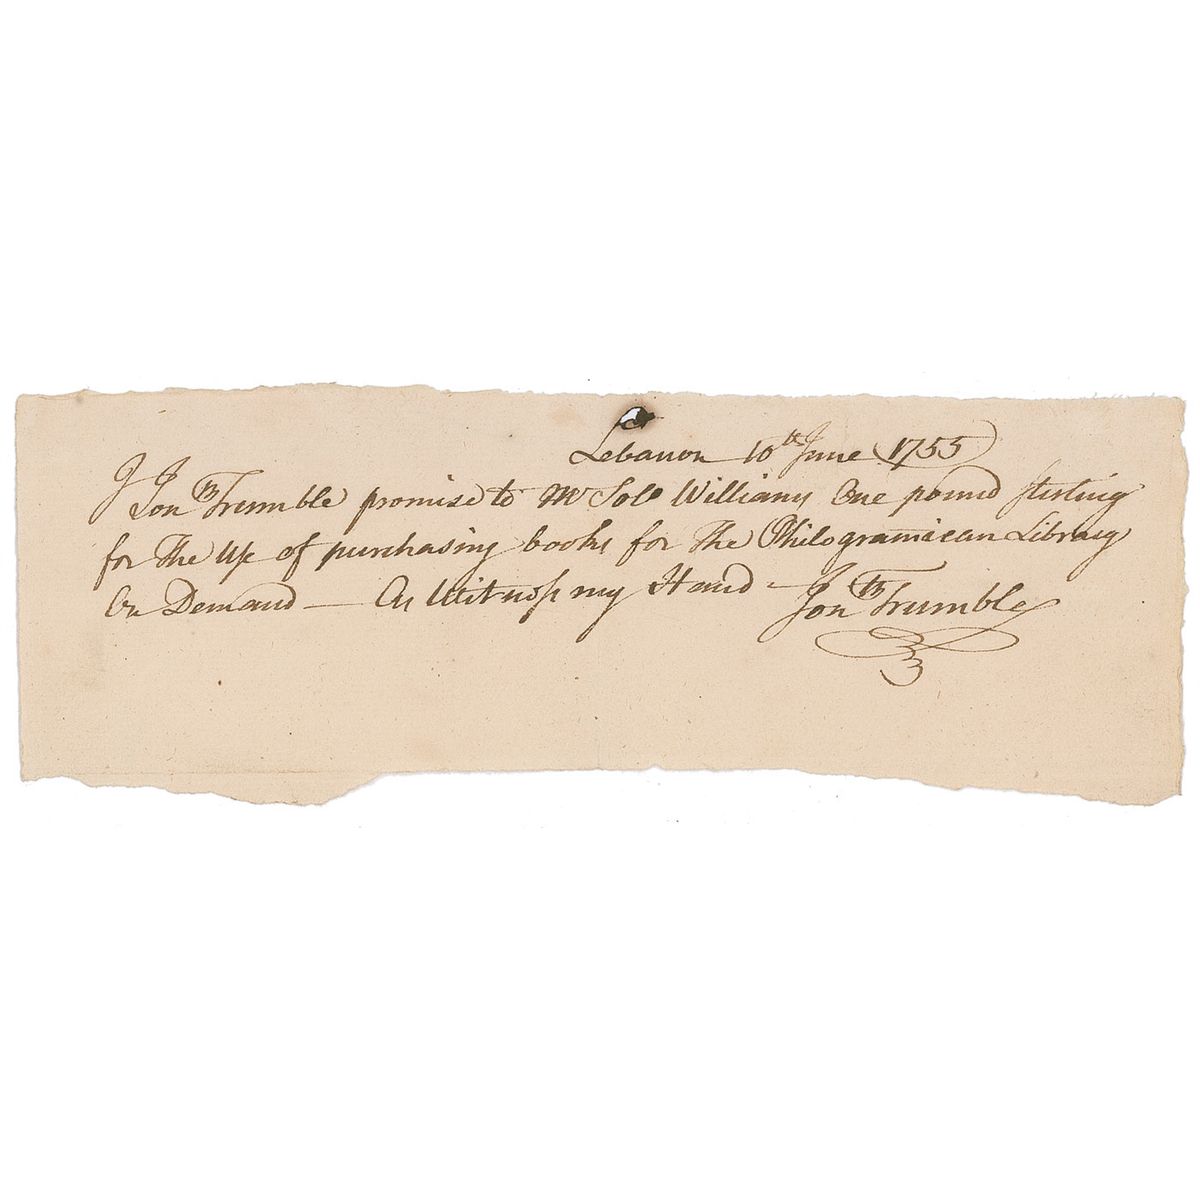 Lebanon 10th June 1755
I Jonth Trumble promise to Mr Solo Williams One pound sterling
for the Use of purchasing books for the Philogramican Library
On Demand — As Witness my Hand - Jonth Trumble